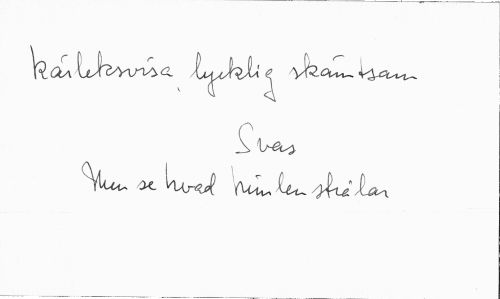 kärleksvisa, lycklig skämtsam
Svar
Men se hvad himlen strålar